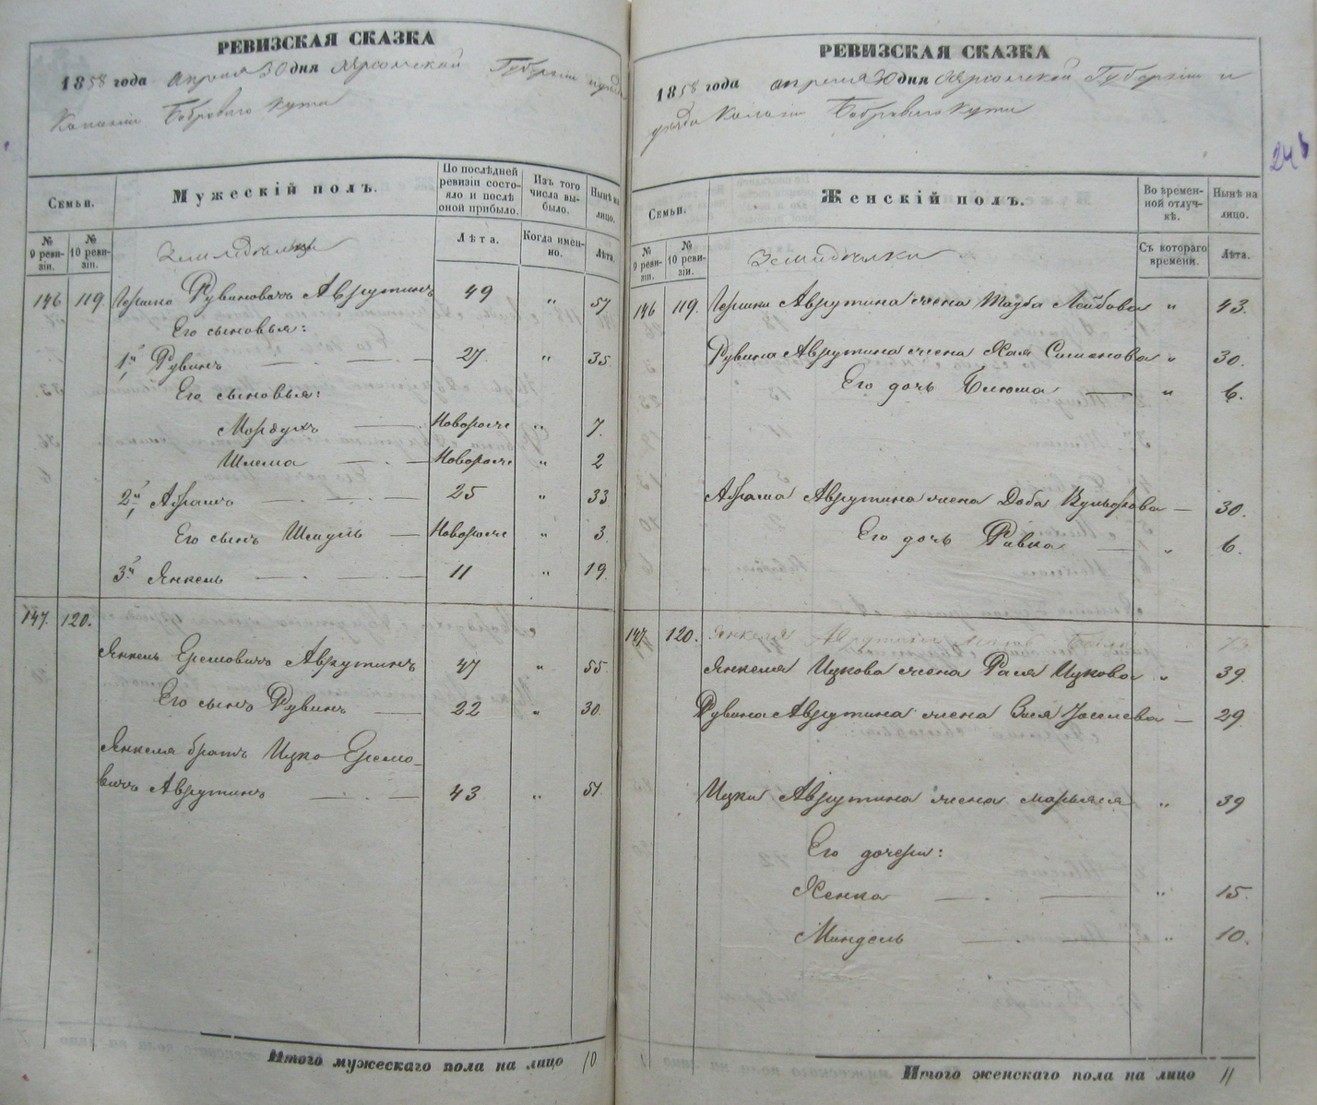 РЕВИЗСКАЯ СКАЗКА
1858 года апреля 30 дня Херсонской Губернии и уезда
Колонии Бобровый кута
Семьи.
Мужескій полъ.
По послѣдней ревизіи состояло и послѣ оной прибыло.
Изъ того числа выбыло.
Нынѣ на лицо.
№ 9 ревизіи.
№ 10 ревизіи.
Лѣта.
Когда именно.
Лѣта.
146 119. Гершко Рувиновичъ Аврутинъ 49 " 57
Его сыновья:
1й Рувинъ 27. " 35
Его сыновья:
Мордухъ Новорожде " 7.
Шлема Новорожде " 2
2й Абрамъ 25 " 33
Его сынъ Шмуль Новорожде " 3.
3й Янкель 11 " 19.
147. 120.
Янкель Еремовичъ Аврутинъ 47 " 55
Его сынъ Рувинъ 22 " 30.
Янкеля братъ Ицко Еремо-
вичъ Аврутинъ 43 " 51
Итого мужескаго пола на лицо 10.
РЕВИЗСКАЯ СКАЗКА
1858 года апреля 30 дня Херсонской Губерніи и
уезда Колоніи Бобровый кута
24
Семьи.
Женскій полъ.
Во временной отлучкѣ.
Нынѣ на лицо.
№ 9 ревизіи.
№ 10 ревизіи.
Съ котораго времени.
Лѣта.
146 119. Гершки Аврутина жена Лейбова " 43.
Рувина Аврутина жена Хая Симонова " 30.
Его дочь Блюма " 6.
Абрама Аврутина жена Доба Вульфова 30.
Его дочь Ривка " 6.
147 120.
Янкеля Ицкова жена Раля Ицкова " 39
Рувина Аврутина жена Иоселева 29
Ицки Аврутина жена Марьяся " 39
Его дочери:
Хенка " 15
Миндель " 10.
Итого женскаго пола на лицо 11